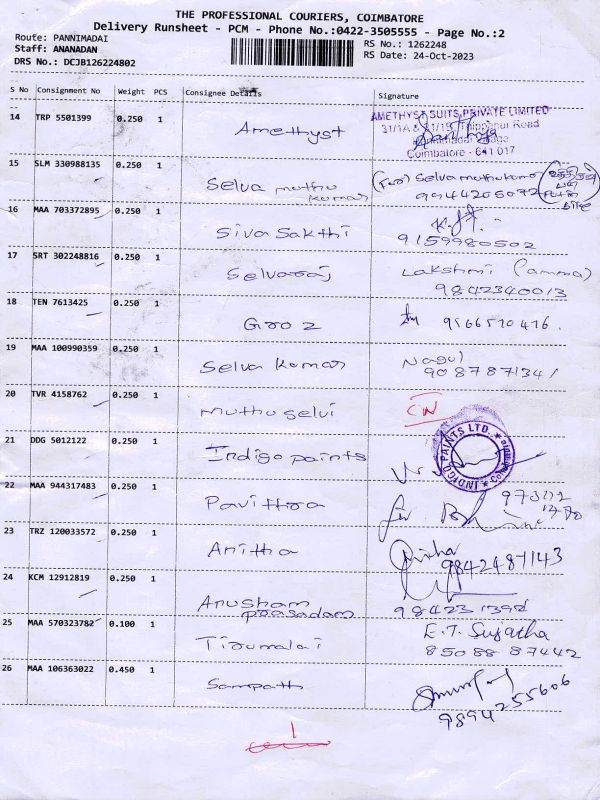 THE PROFESSIONAL COURIERS, COIMBATORE
Delivery Runsheet - PCM - Phone No.:0422-3505555 - Page No.:2
Route: PANNIMADAI
RS No.: 1262248
Staff: ANANADAN
RS Date: 24-Oct-2023
DRS No.: DCJB126224802
S No Consignment No Weight PCS Consignee Details Signature
14 TRP 5501399 0.250 1 Amethyst
AMETHYST SUITS PRIVATE LIMITED
31/1A & 31/1B, Thippanur Road
Coimbatore - 641 017
15 SLM 330988135 0.250 1 Selva muthu kumar
(For) Selva muthukumar
9944205072
16 MAA 703372895 0.250 1 Siva Sakthi
9159980502
17 SRT 302248816 0.250 1 Selvaraj
Lakshmi (amma)
9842340013
18 TEN 7613425 0.250 1 Groz
9566570416.
19 MAA 100990359 0.250 1 Selva kumar
Nagul
9087871341
20 TVR 4158762 0.250 1 muthu selvi
21 DDG 5012122 0.250 1 Indigo paints
INDIGO PAINTS LTD.
22 MAA 944317483 0.250 1 Pavithra
23 TRZ 120033572 0.250 1 Anitha
9842487143
24 KCM 12912819 0.250 1 Anusham prasadam
25 MAA 570323782 0.100 1 Tirumalai
E.T. Sujatha
85088 87442
26 MAA 106363022 0.450 1 Sampath
9894255606
1